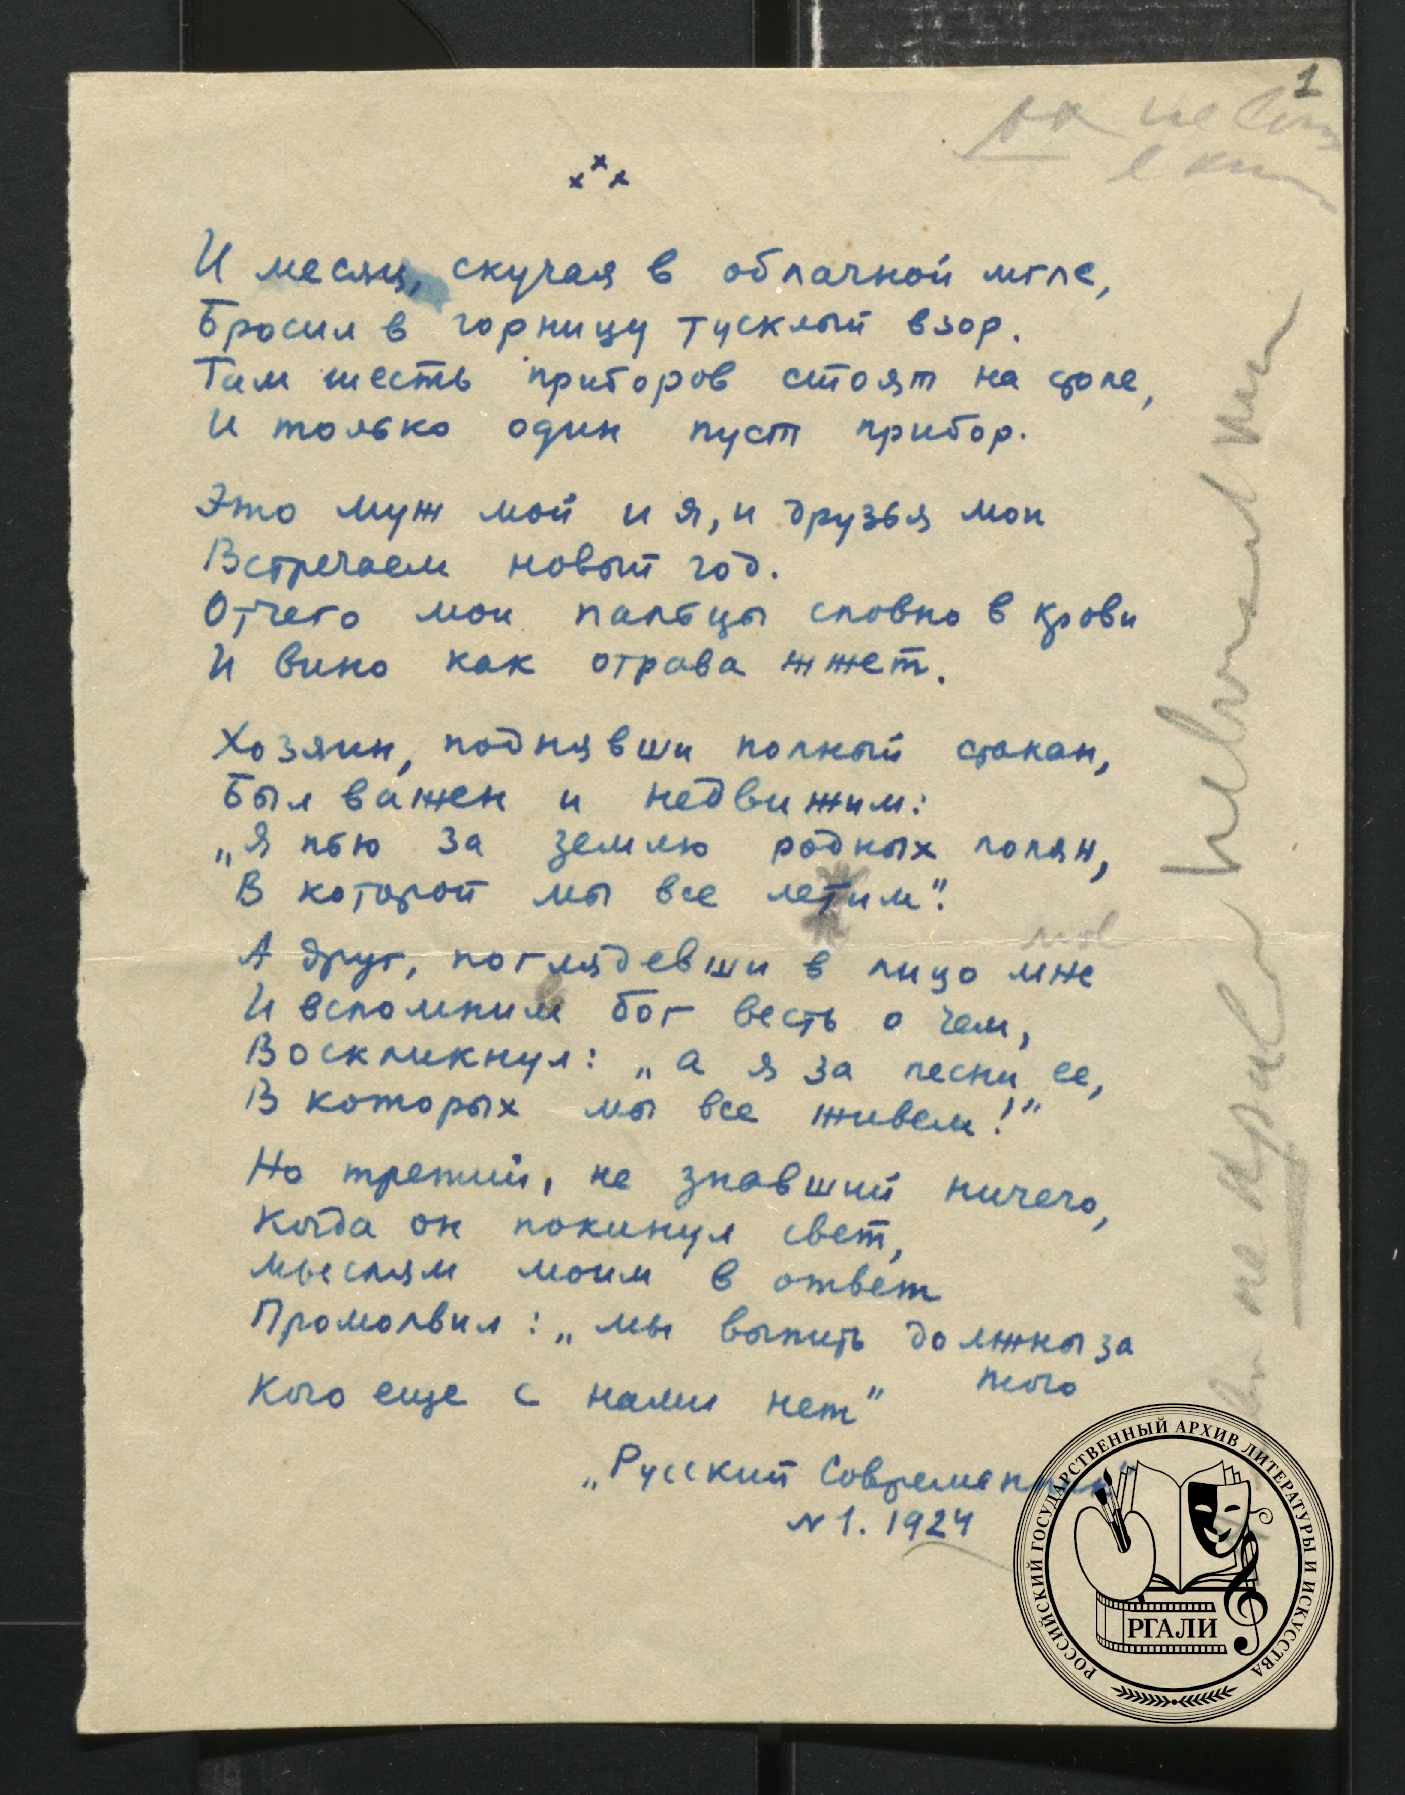 1
х х х
И месяц, скучая в облачной мгле,
Бросил в горницу тусклый взор.
Там шесть приборов стоят на столе,
И только один пуст прибор.
Это муж мой и я, и друзья мои
Встречаем новый год.
Отчего мои пальцы словно в крови
И вино как отрава жжет.
Хозяин, поднявши полный стакан,
Был важен и недвижим:
„Я пью за землю родных полян,
В которой мы все летим".
А друг, поглядевши в лицо мне
И вспомним бог весть о чем,
Воскликнул: „а я за песни ее,
В которых мы все живем!"
Но третий, не знавший ничего,
Когда он покинул свет,
мыслям моим в ответ
Промолвил: „мы выпить должны за
того
Кого еще с нами нет"
„Русский Современник"
N 1. 1924
РОССИЙСКИЙ ГОСУДАРСТВЕННЫЙ АРХИВ ЛИТЕРАТУРЫ И ИСКУССТВА
РГАЛИ